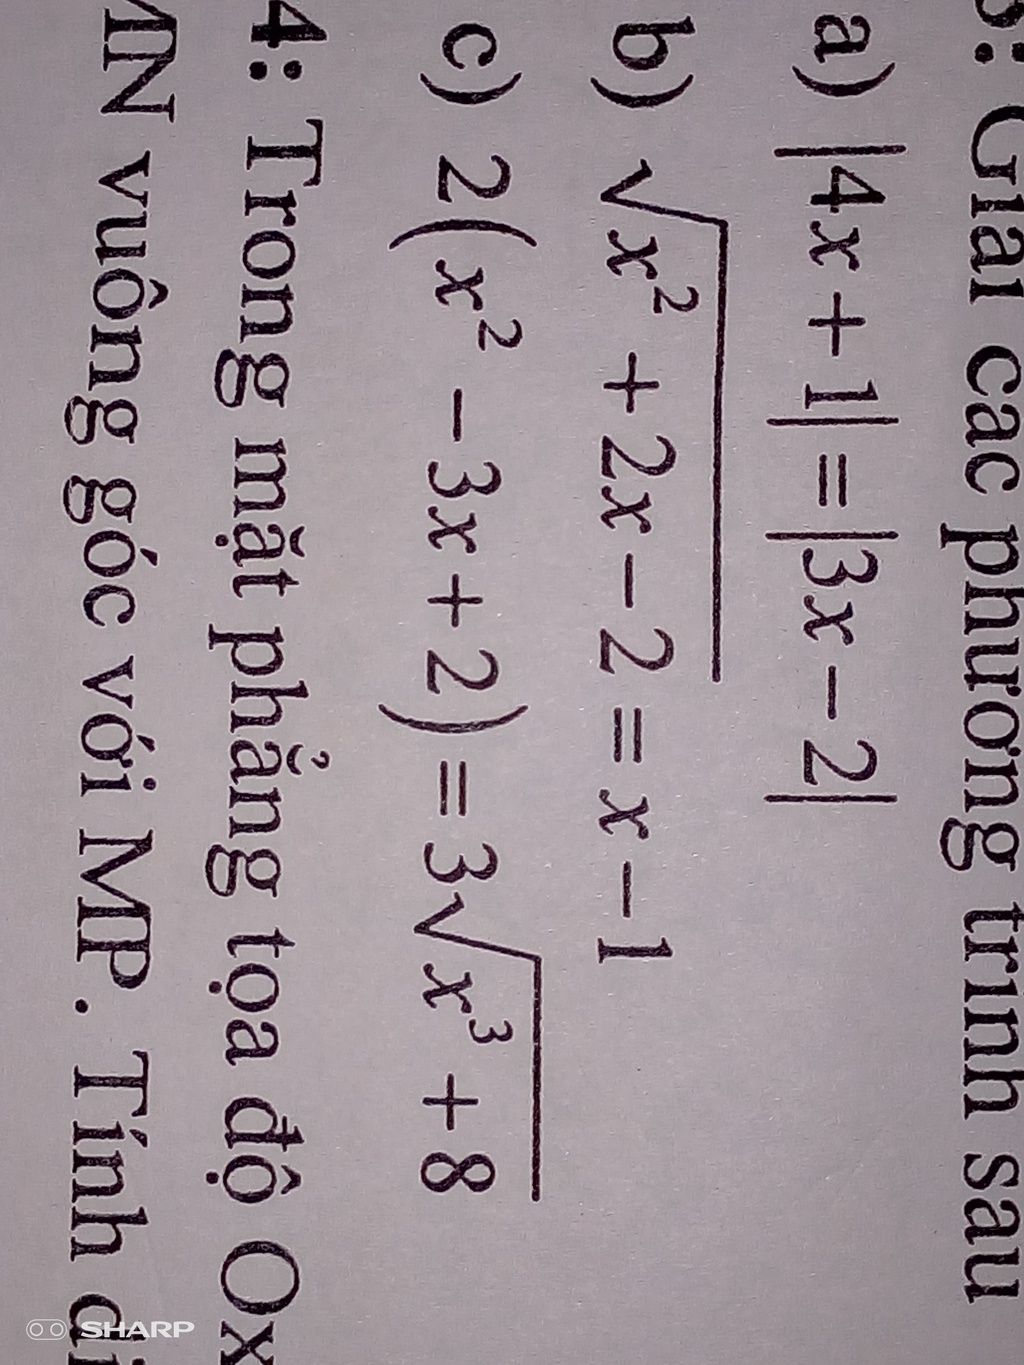 3: Giải các phương trình sau
a) |4x + 1| = |3x − 2|
b) √(x² + 2x − 2) = x − 1
c) 2(x² − 3x + 2) = 3√(x³ + 8)
4: Trong mặt phẳng tọa độ Ox
MN vuông góc với MP. Tính di
SHARP